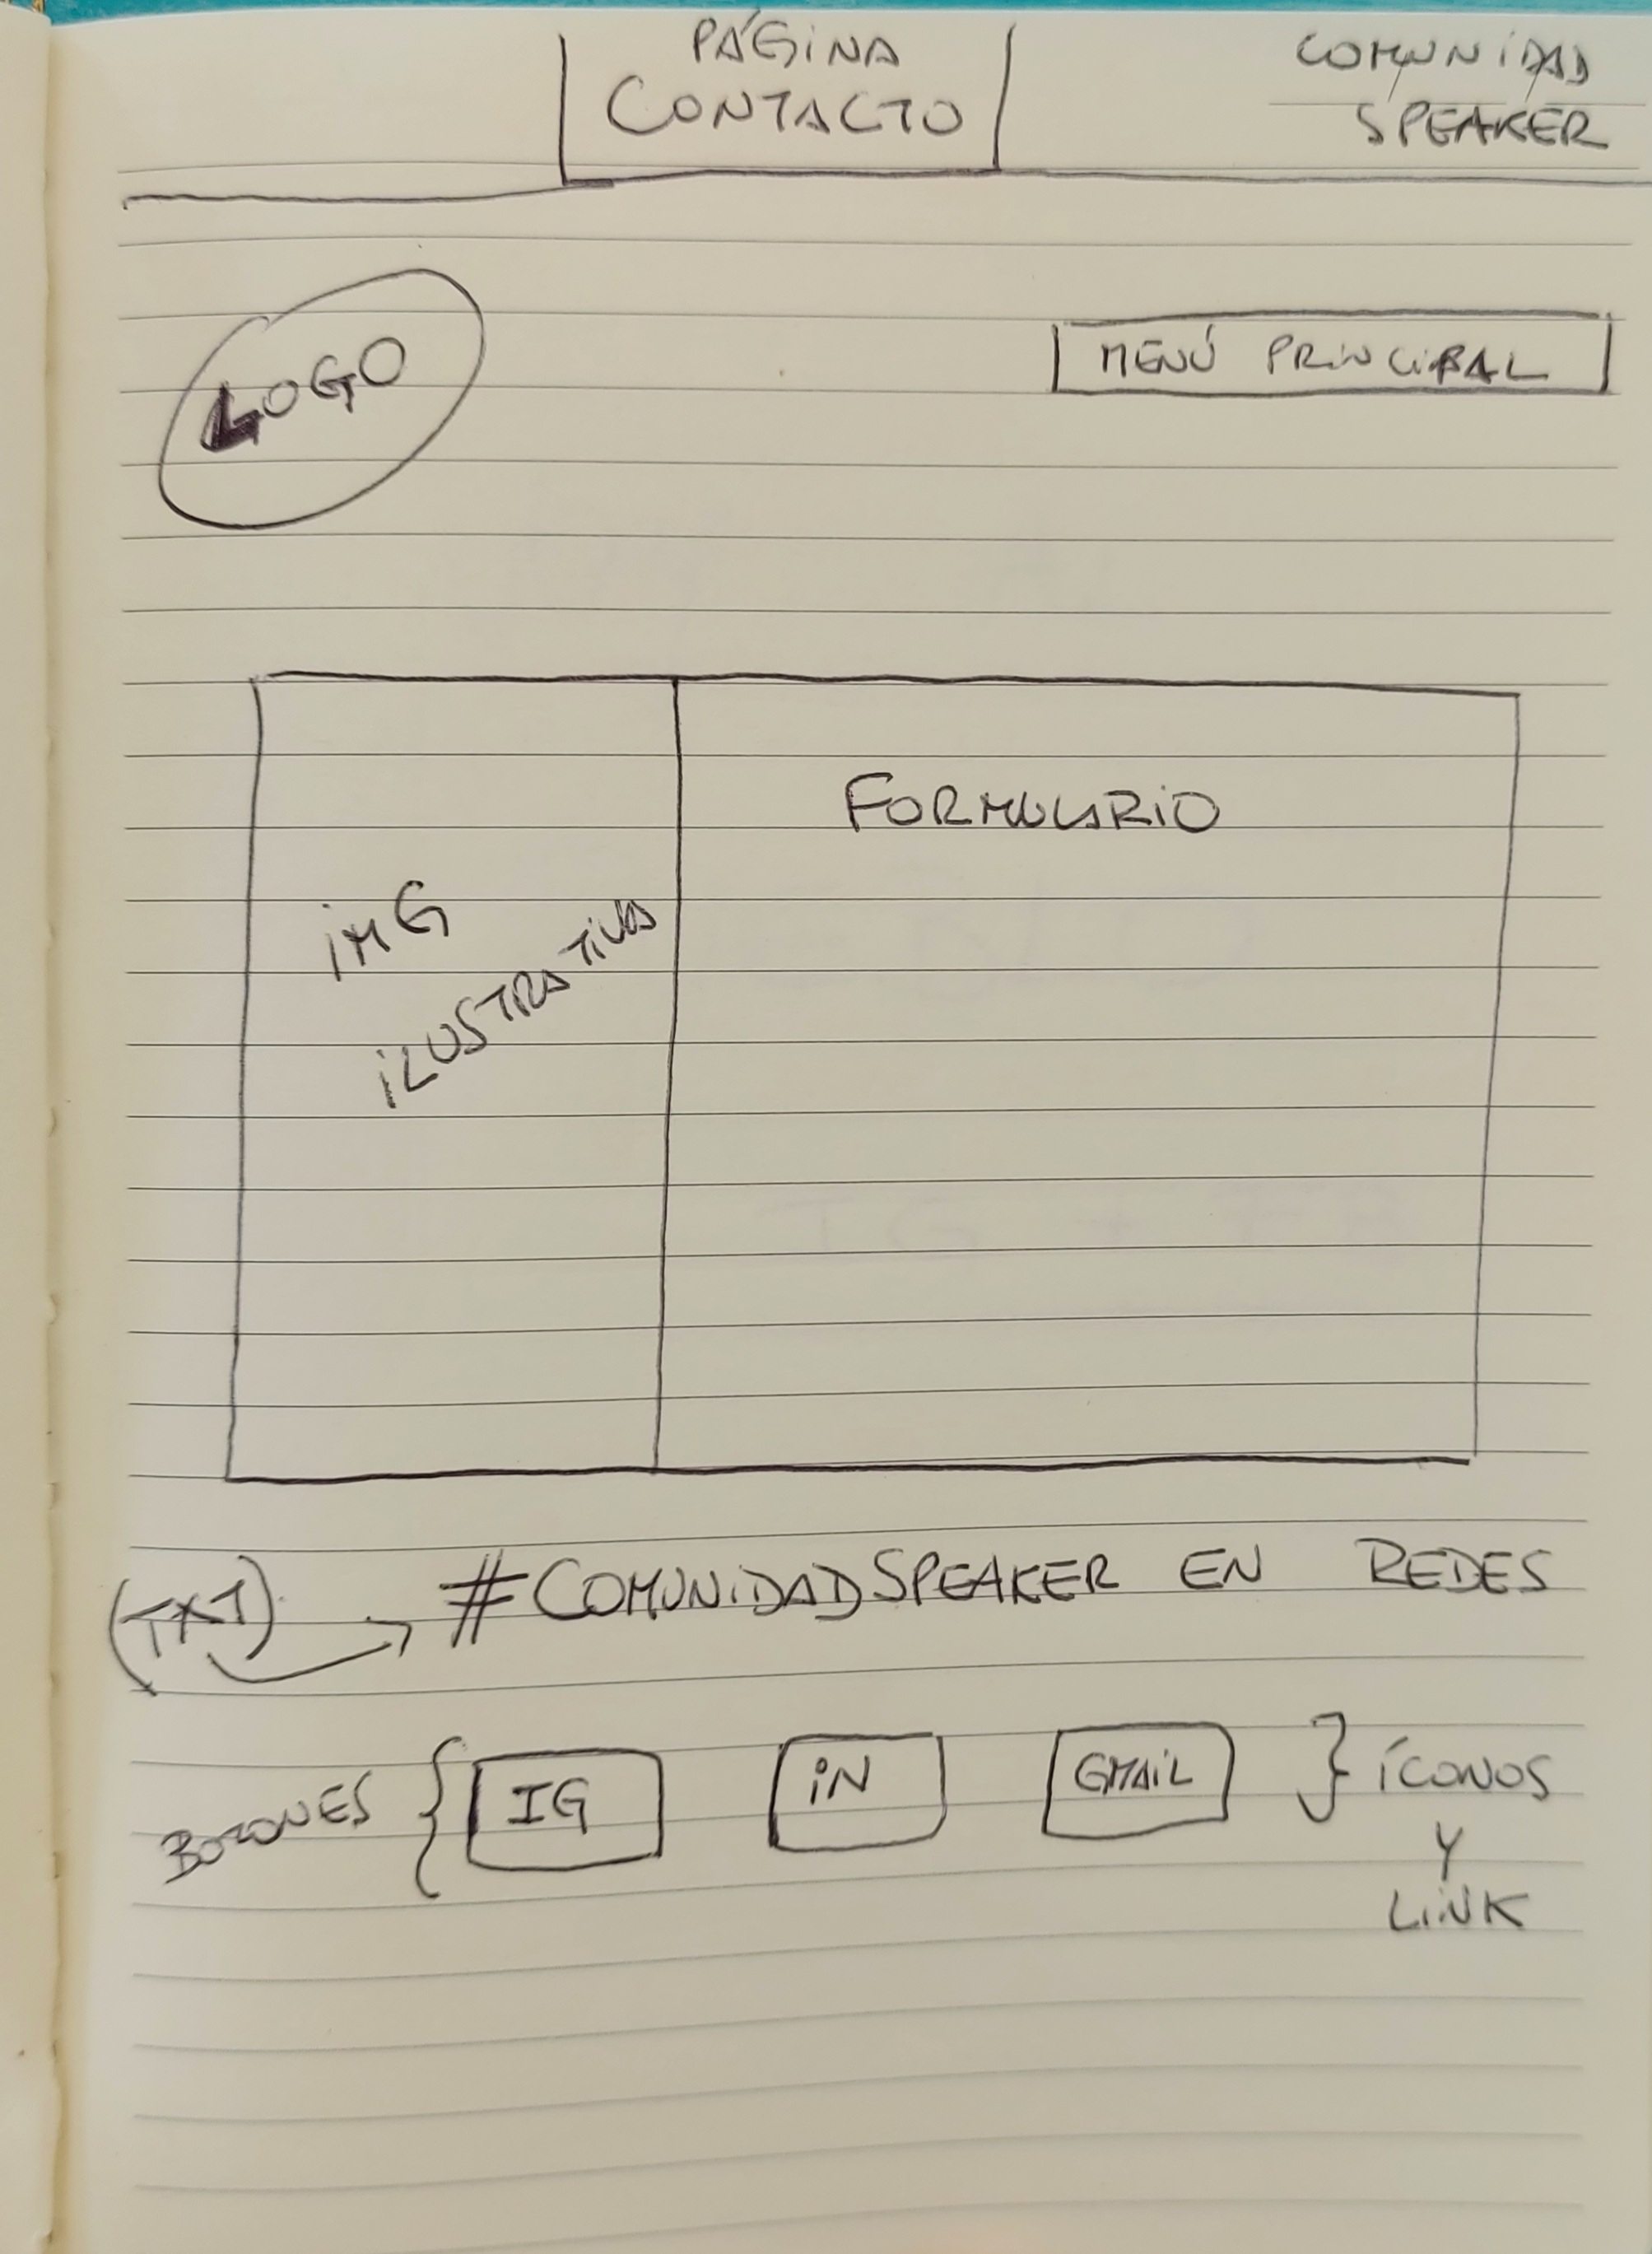 PÁGINA
CONTACTO
COMUNIDAD
SPEAKER
LOGO
MENÚ PRINCIPAL
FORMULARIO
IMG
ILUSTRATIVA
(TXT) #COMUNIDADSPEAKER EN REDES
BOTONES { IG IN GMAIL } ÍCONOS
Y
LINK